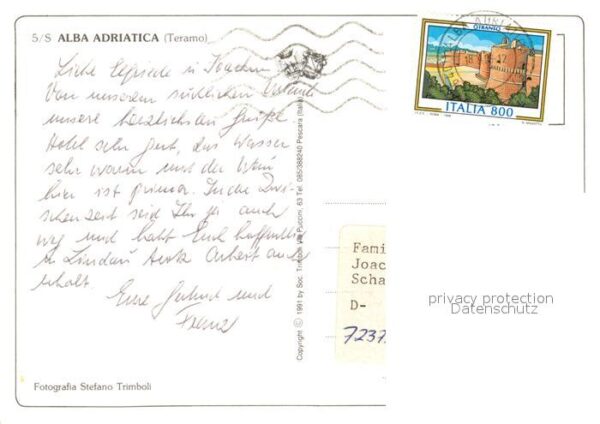 5/S ALBA ADRIATICA (Teramo)
Liebe Elfriede u. Joachim
Von unserem südlichen
unsere herzlichsten Grüße.
Hotel sehr gut, das Wasser
sehr warm und der Wein
hier ist prima. In der Zwi-
schenzeit seid Ihr ja auch
weg und habt Euch hoffentlich
in Lindau trotz Arbeit auch
erholt.
Eure Gertrud und
Franz
Fotografia Stefano Trimboli
Copyright © 1991 by Soc. Trimboli Via Puccini, 63 Tel. 085/388240 Pescara (Italia)
ITALIA 800
Fami
Joac
Scha
D-
7237
privacy protection
Datenschutz